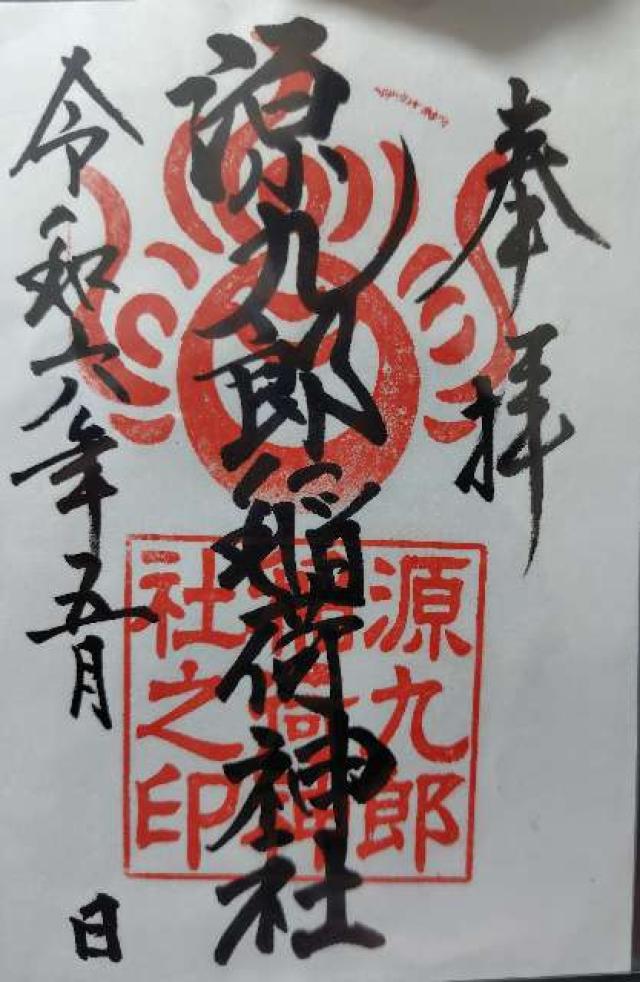 奉拝
源九郎稲荷神社
源九郎
稲荷神
社之印
令和六年五月 日